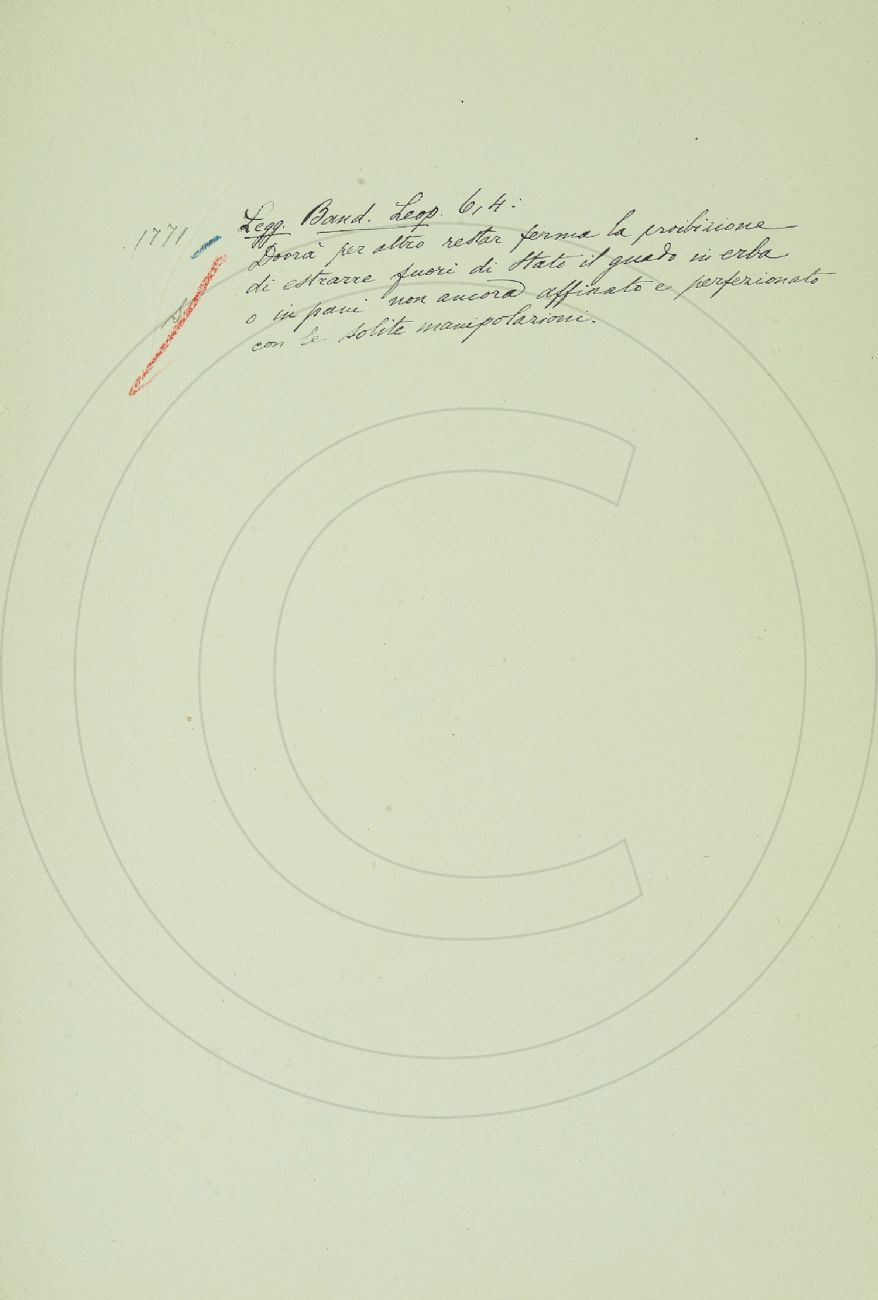 1771
Legg. Band. Leop. 6, 4:
Dovrà per altro restar ferma la proibizione
di estrarre fuori di Stato il guado in erba
o in pani non ancora affinato e perfezionato
con le solite manipolazioni.